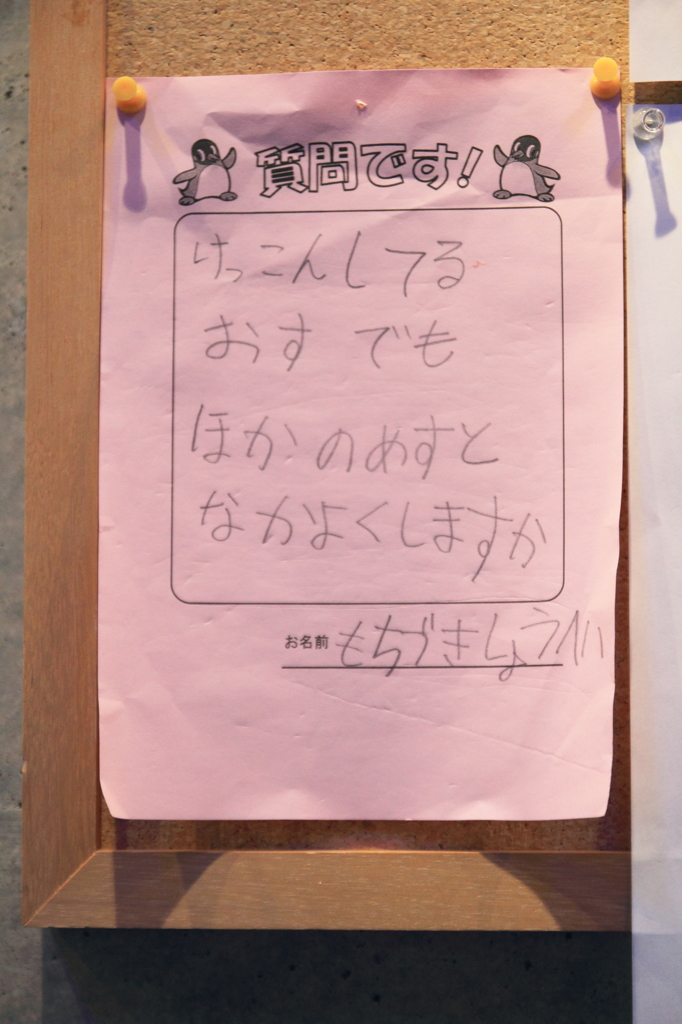 質問です!
けっこんしてる
おす でも
ほかのめすと
なかよくしますか
お名前 もちづきしょうい